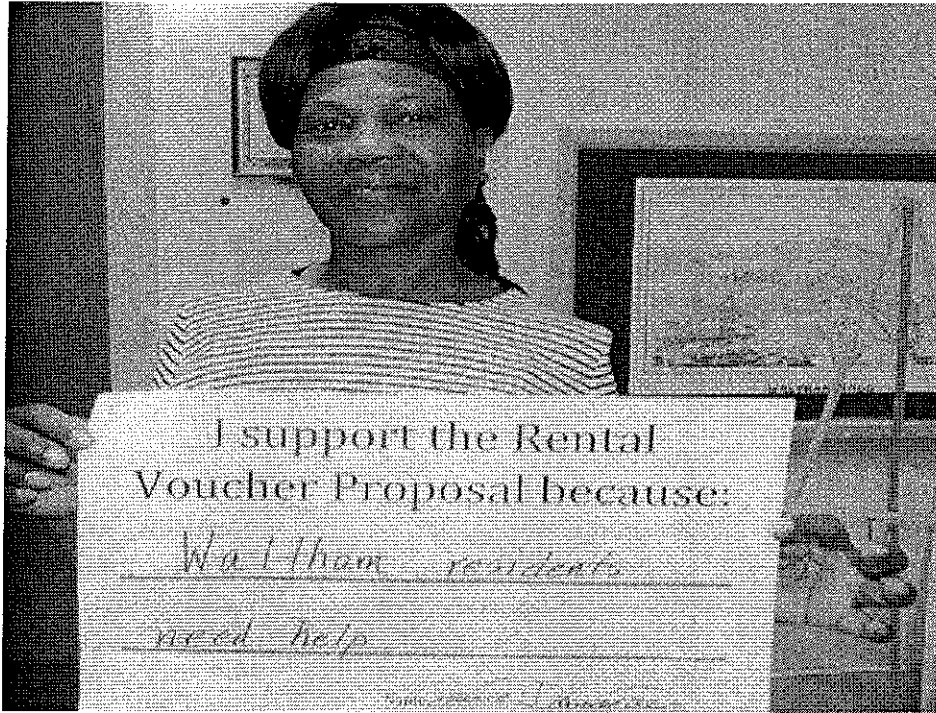 I support the Rental
Voucher Proposal because:
Waltham residents
need help